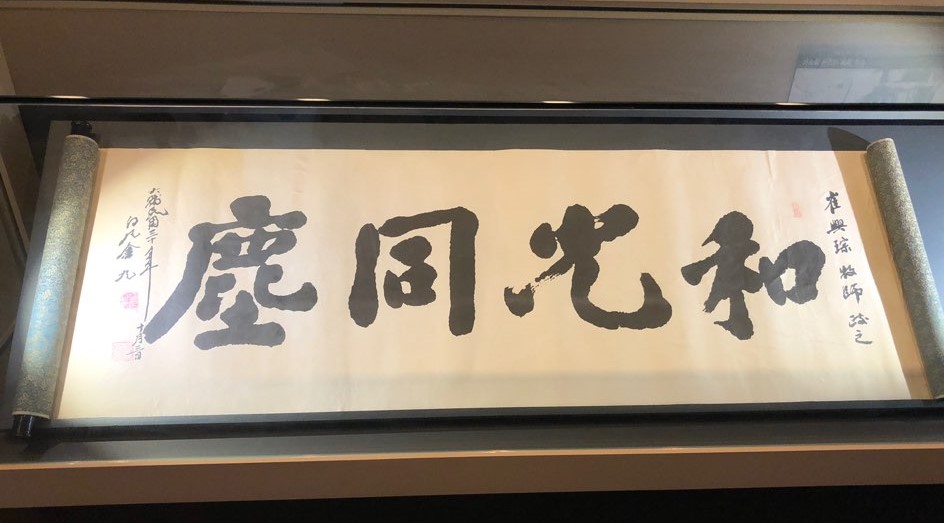 崔興琮 牧師 政之
和光同塵
大韓民國三十年
白凡金九